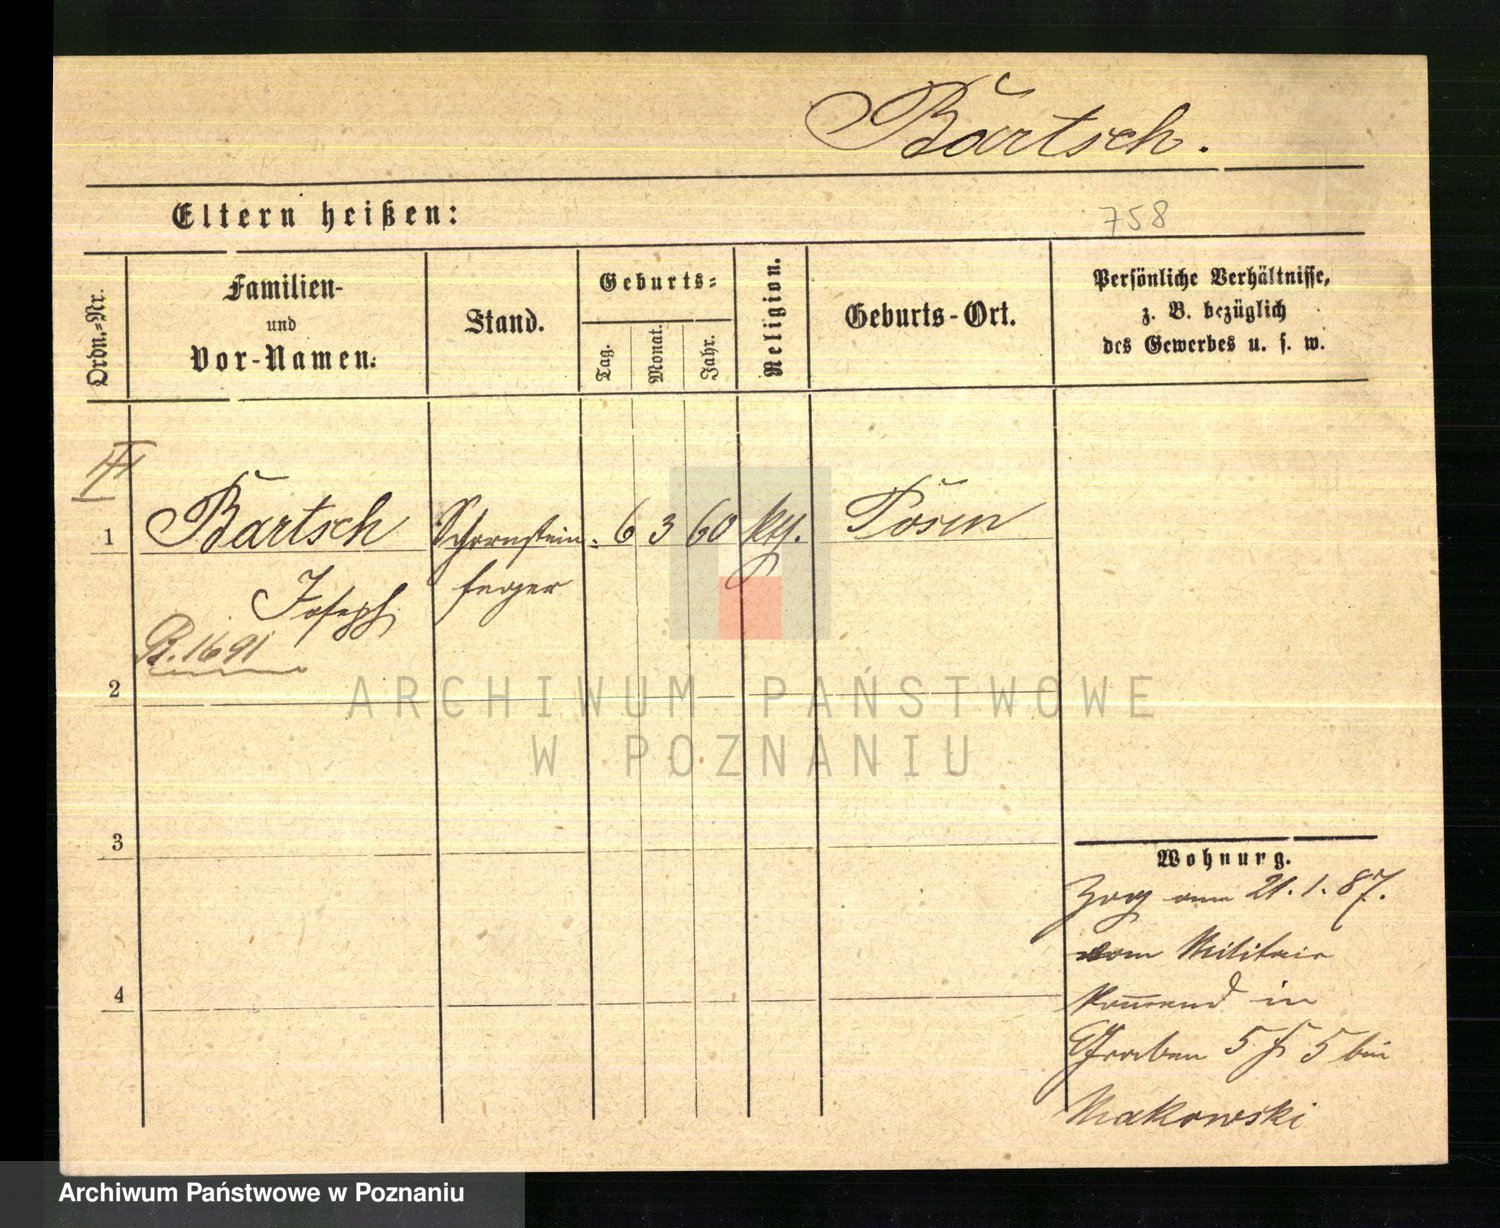 Bartsch.
Eltern heißen:
758
Ordn.-Nr.
Familien-
und
Vor-Namen:
Stand.
Geburts-
Tag.
Monat.
Jahr.
Religion.
Geburts-Ort.
Persönliche Verhältnisse,
z. B. bezüglich
des Gewerbes u. s. w.
1 Bartsch Schornstein- 6 3 60 kth. Posen
Joseph feger
R. 1691
2
3
4
Wohnung.
Zog am 21.1.87.
vom Militair
kom̄end in
Graben 5 5 bei
Makowski
ARCHIWUM PAŃSTWOWE
W POZNANIU
Archiwum Państwowe w Poznaniu